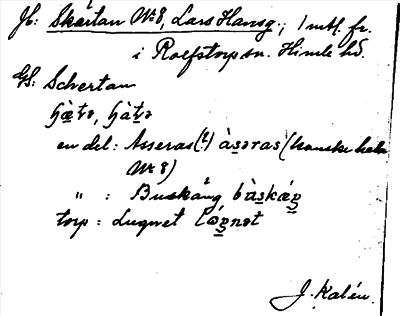 Jb: Skärtan Nr 8, Lars Hansg.; / mtl. fr.
i Rolfstorp sn. Himle hd.
GS: Schertan
en del: Asseras(?) àsəras (kanske hela
Nr 8)
" : Buskång bùskáŋ
torp : Lugnet
J. Kalén.